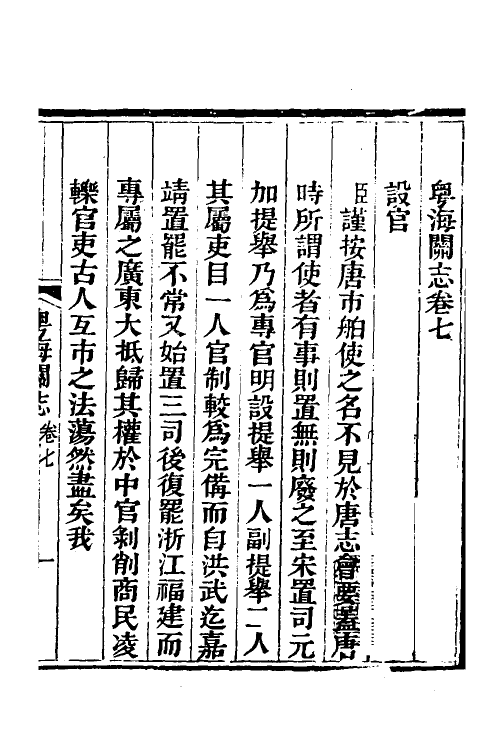 粵海關志卷七
設官
臣謹按唐市舶使之名不見於唐志會要蓋唐
時所謂使者有事則置無則廢之至宋置司元
加提舉乃爲專官明設提舉一人副提舉二人
其屬吏目一人官制較爲完備而自洪武迄嘉
靖置罷不常又始置三司後復罷浙江福建而
專屬之廣東大抵歸其權於中官剝削商民凌
轢官吏古人互市之法蕩然盡矣我
粵海關志 卷七 一